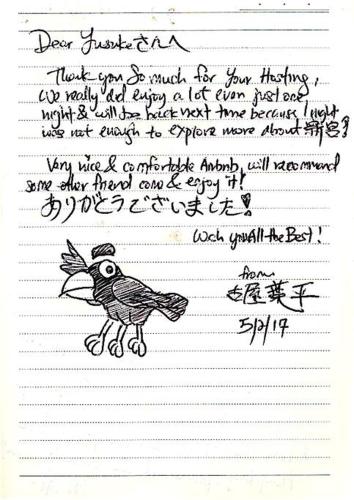 Dear Yusukeさんへ
Thank you so much for your Hosting,
We really did enjoy a lot even just one
night & will be back next time because 1 night
was not enough to explore more about 新宮?
Very nice & comfortable Airbnb, will recommend
some other friend come & enjoy it!
ありがとうございました!
Wish you All the Best!
from
屋 平
5/2/17